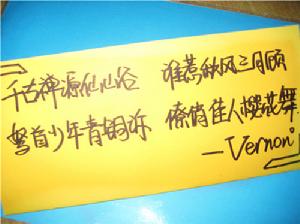 千古禅源仙山谷 谁惹秋风三月顾
首少年青铜诉 俏佳人樱花舞
—Vernon